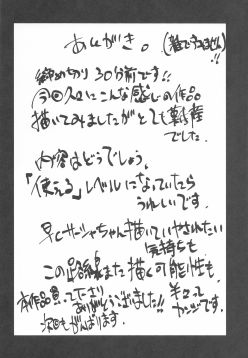 あとがき。
(雑ですみません)!!
締め切り30分前です!!
今回久々にこんな感じの作品
描いてみましたがとても
でした。
内容はどうでしょう、
「使える」レベルになっていたら
うれしいです。
早くサーシャちゃん描いていやされたい
気持ちも
この路線また描く可能性も、
半々って
カンジです。
本作品買って下さり
ありがとうございました!!
次回もがんばります。